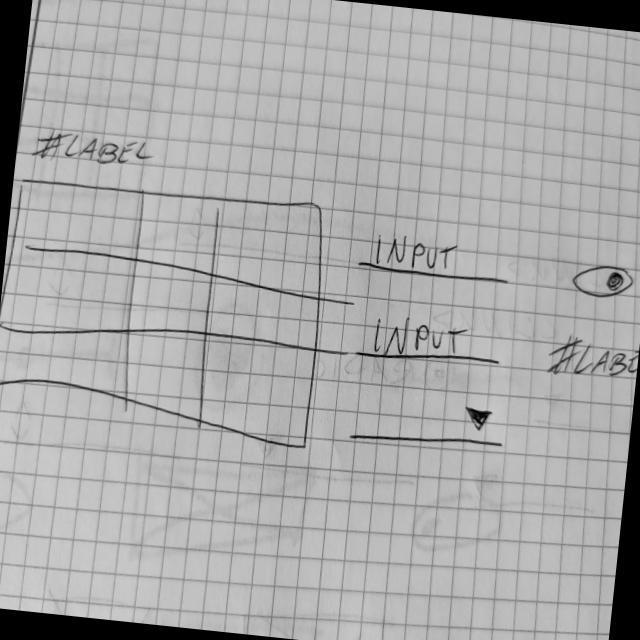 #LABEL
INPUT
INPUT
#LABEL